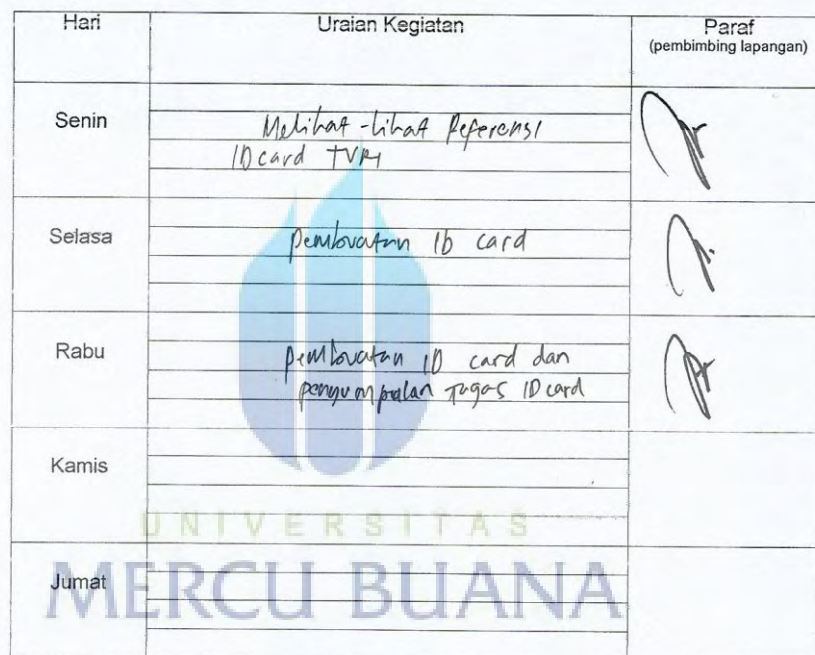 Hari
Uraian Kegiatan
Paraf
(pembimbing lapangan)
Senin
Melihat-lihat Referensi
ID card TVRI
Selasa
pembuatan ID card
Rabu
pembuatan ID card dan
pengumpulan Tugas ID card
Kamis
Jumat
UNIVERSITAS
MERCU BUANA